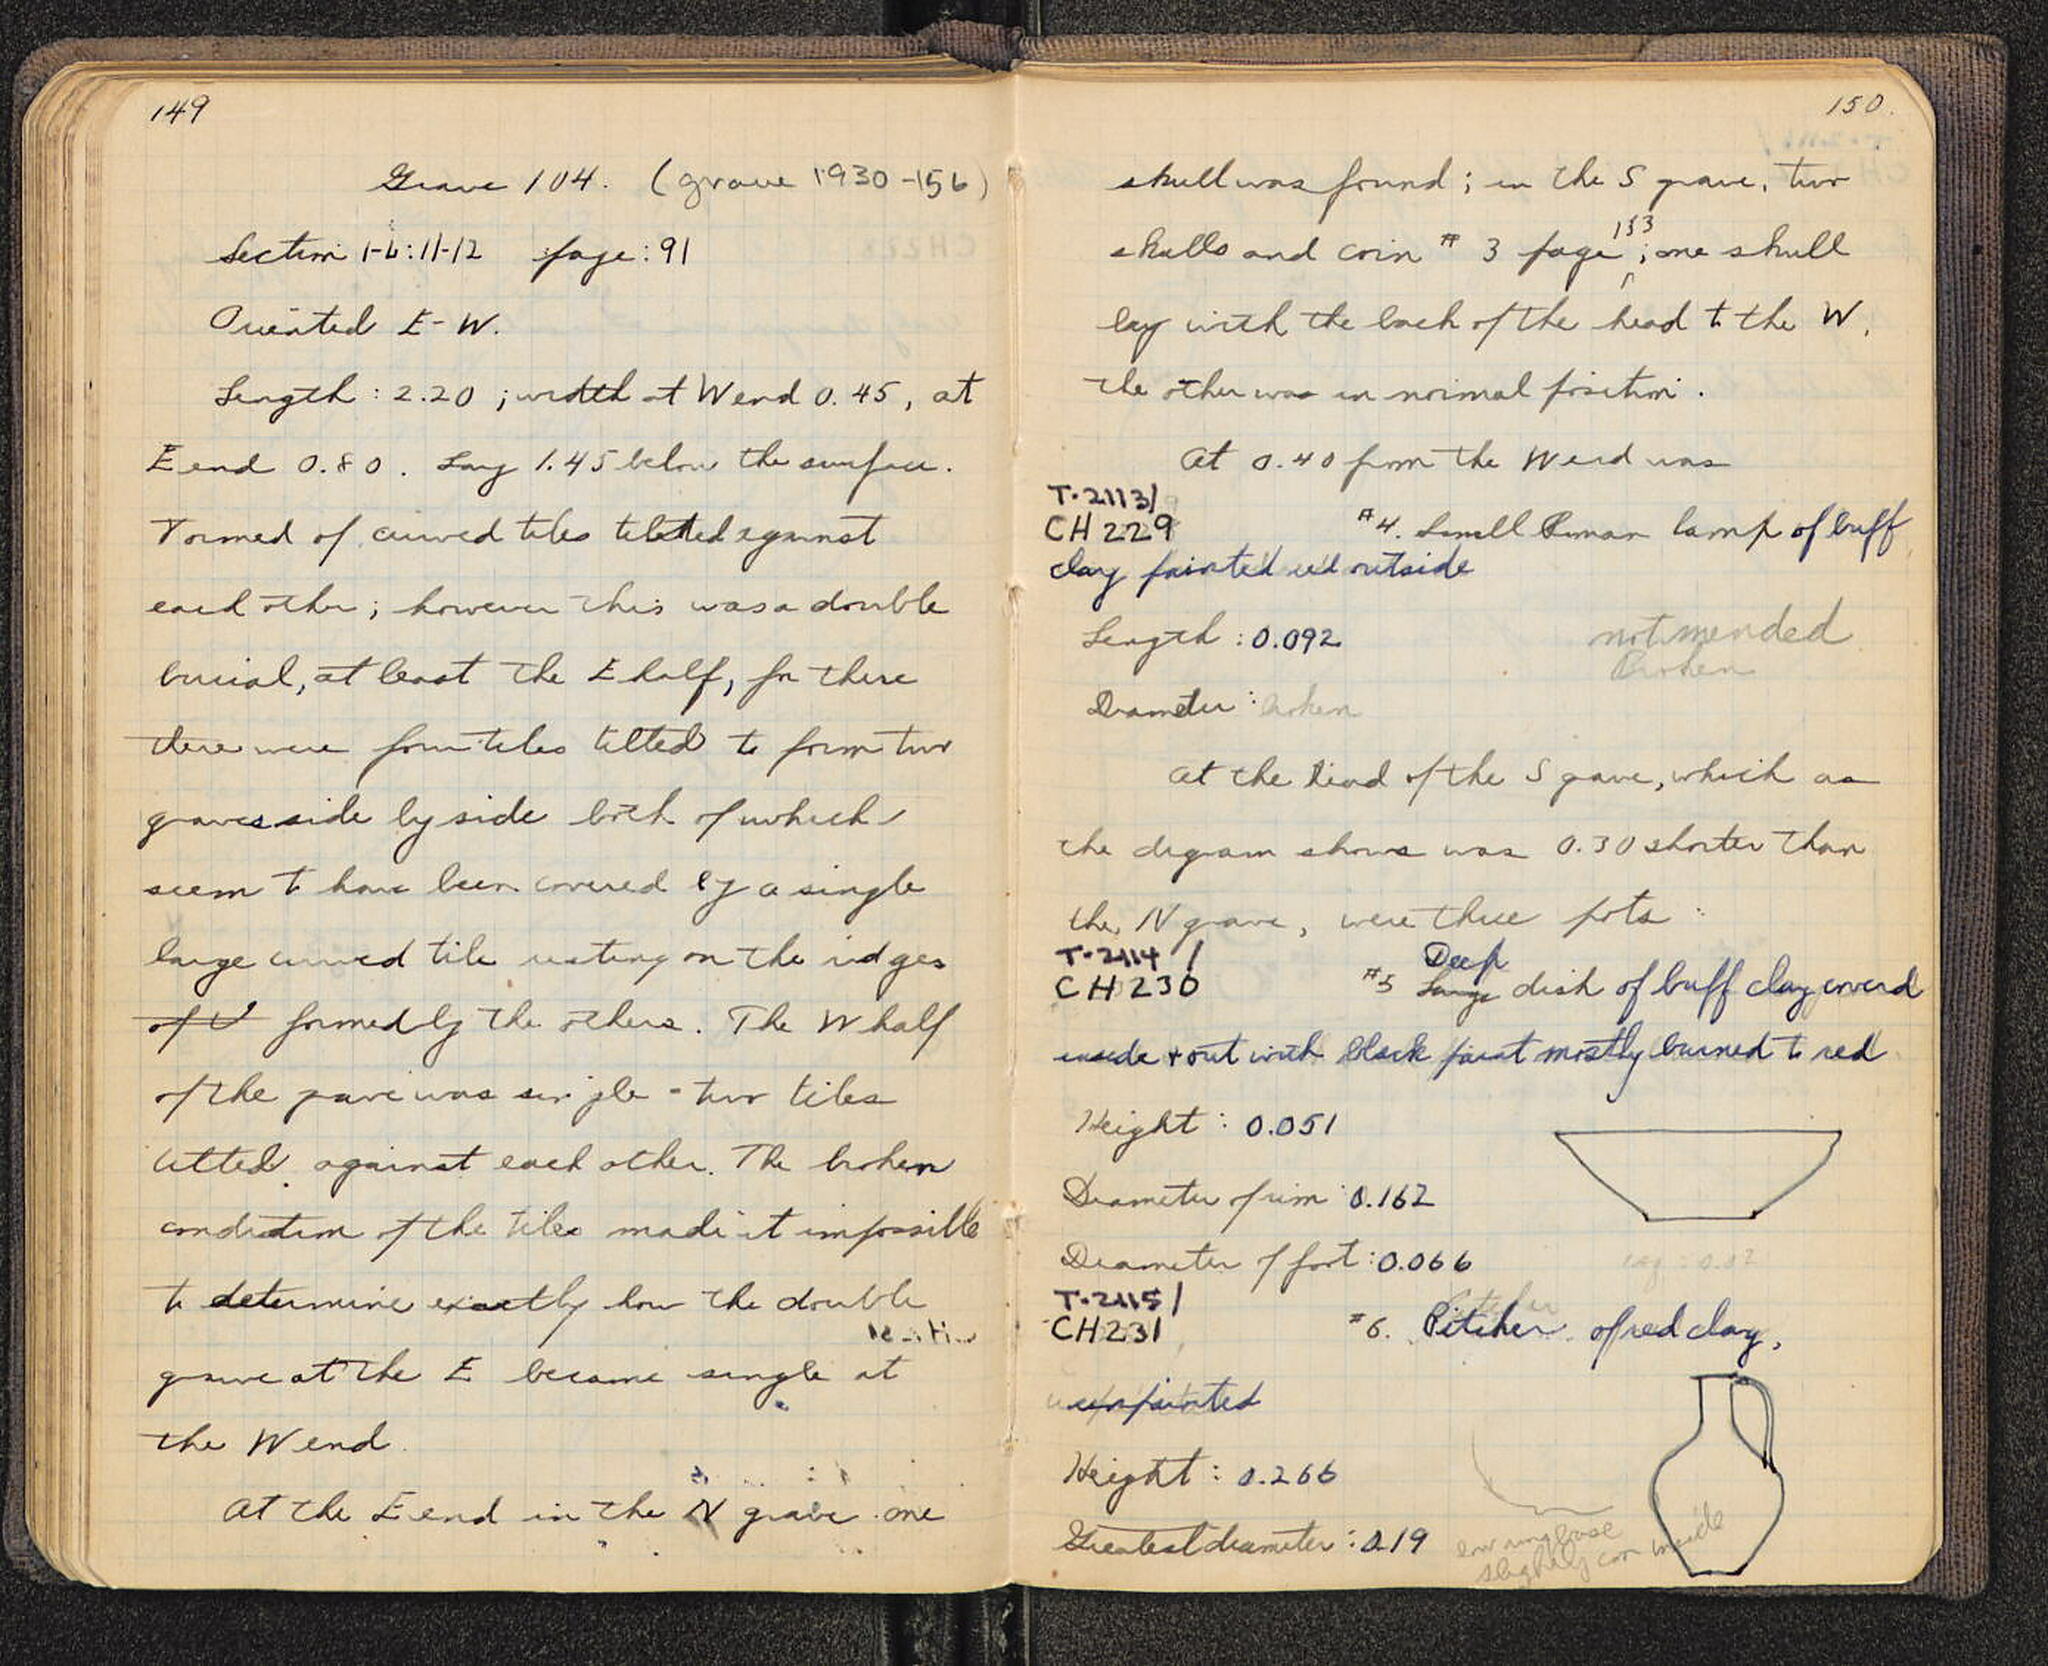 149
Grave 104. (grave 1930-156)
Section 1-6:11-12 page: 91
Oriented E-W.
Length: 2.20; width at W end 0.45, at
E end 0.80. Lay 1.45 below the surface.
Formed of curved tiles tilted against
each other; however this was a double
burial, at least the E half, for there
there were four tiles tilted to form two
graves side by side both of which
seem to have been covered by a single
large curved tile resting on the ridges
of formed by the others. The W half
of the grave was single - two tiles
tilted against each other. The broken
condition of the tiles made it impossible
to determine exactly how the double
grave at the E became single at
the W end.
At the E end in the N grave one
150.
skull was found; in the S grave, two
skulls and coin # 3 page 153; one skull
lay with the back of the head to the W,
the other was in normal position.
At 0.40 from the W end was
T-2113/
CH 229
#4. Small Roman lamp of buff
clay painted red outside
Length: 0.092
not mended
Broken
Diameter: broken
At the head of the S grave, which as
the digram shows was 0.30 shorter than
the N grave, were three pots:
T-2114/
CH 230
#5 Large Deep dish of buff clay coverd
inside + out with black paint mostly burned to red
Height: 0.051
Diameter of rim: 0.162
Diameter of foot: 0.066
T-2115/
CH 231
#6. Pitcher of red clay,
unpainted
Height: 0.266
Greatest diameter: 0.19
low ring base
slightly con inside